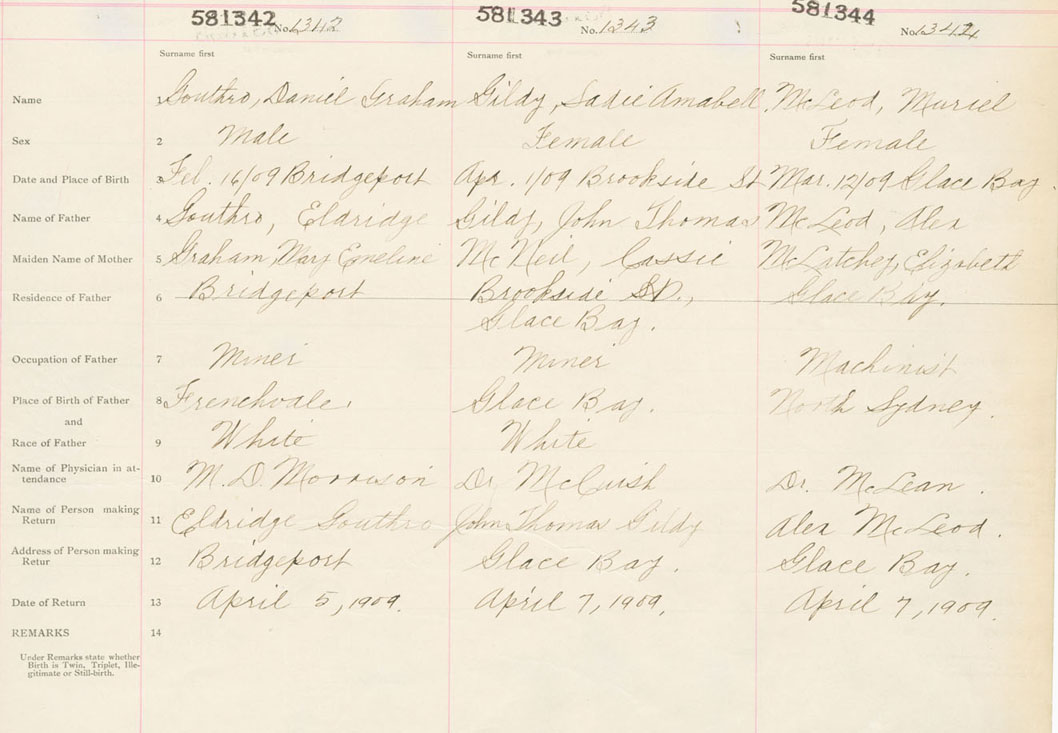 581342 No. 1342 581343 No. 1343 581344 No. 1344
Surname first Surname first Surname first
Name 1 Gouthro, Daniel Graham Gildy, Sadie Amabell McLeod, Muriel
Sex 2 Male Female Female
Date and Place of Birth 3 Feb. 16/09 Bridgeport Apr. 1/09 Brookside St Mar. 12/09 Glace Bay.
Name of Father 4 Gouthro, Eldridge Gildy, John Thomas McLeod, Alex
Maiden Name of Mother 5 Graham, Mary Emeline McNeil, Cassie McLatchey, Elizabeth
Residence of Father 6 Bridgeport Brookside Glace Bay.
Glace Bay.
Occupation of Father 7 Miner Miner Machinist
Place of Birth of Father 8 Frenchvale. Glace Bay. North Sydney.
and
Race of Father 9 White White
Name of Physician in at-
tendance 10 M. D. Morrison Dr. McCuish Dr. McLean.
Name of Person making
Return 11 Eldridge Gouthro John Thomas Gildy Alex McLeod.
Address of Person making
Retur 12 Bridgeport Glace Bay. Glace Bay.
Date of Return 13 April 5, 1909. April 7, 1909. April 7, 1909.
REMARKS 14
Under Remarks state whether
Birth is Twin, Triplet, Ille-
gitimate or Still-birth.